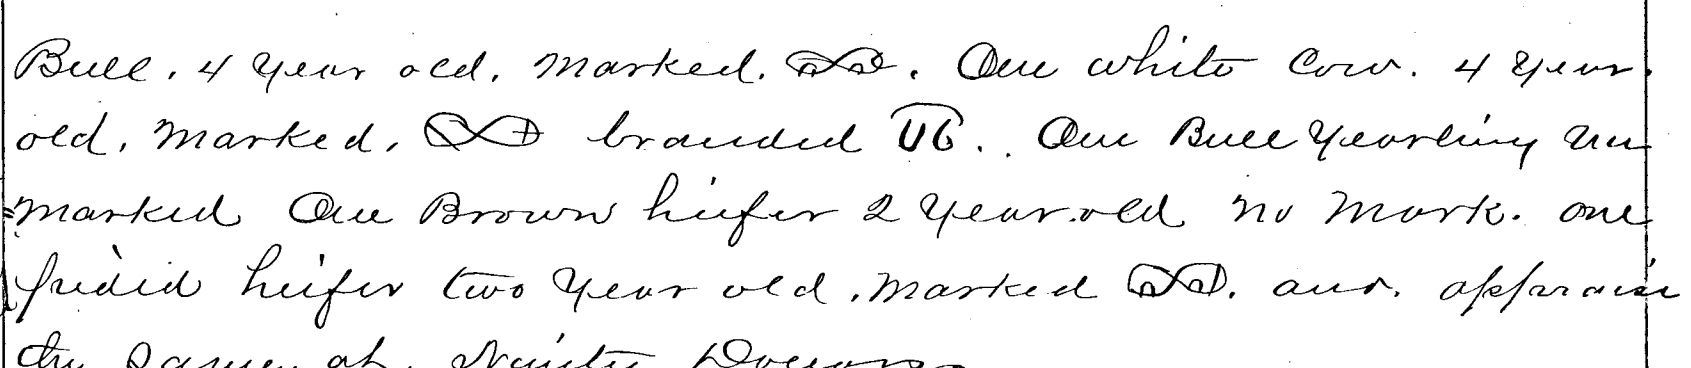 Bull. 4 Year old. Marked. . One white Cow. 4 Year.
old. Marked. branded UC. . One Bull Yearling Un
=marked One Brown heifer 2 Year old no Mark. one
heifer two Year old . Marked . and. appraise
the same at. Ninety Dollars